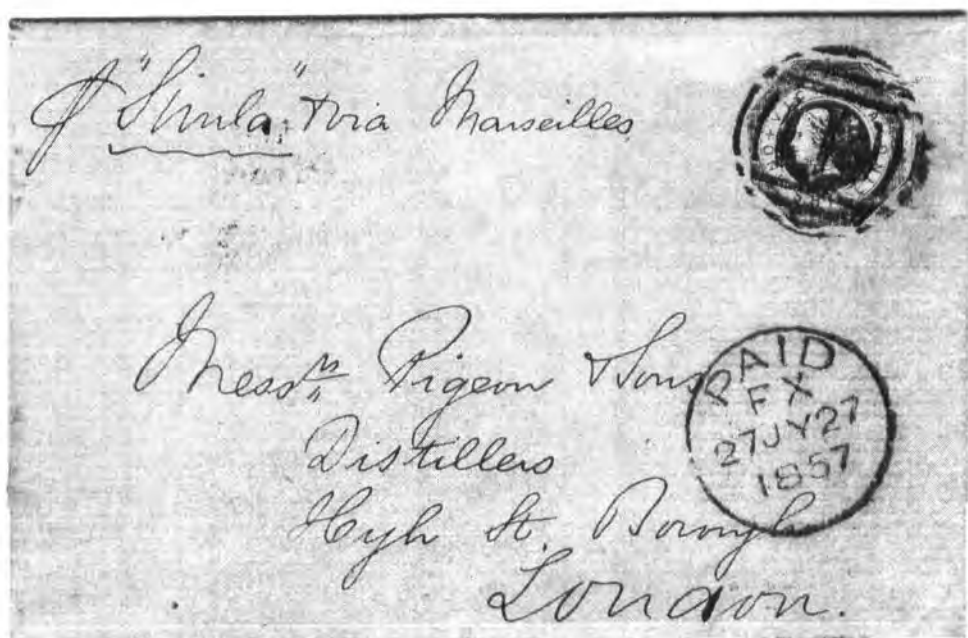 ℘ "Simla," & via Marseilles
Mess.rs Pigeon & Sons
Distillers
High St. Borough
London.
PAID
FX
27JY27
1857